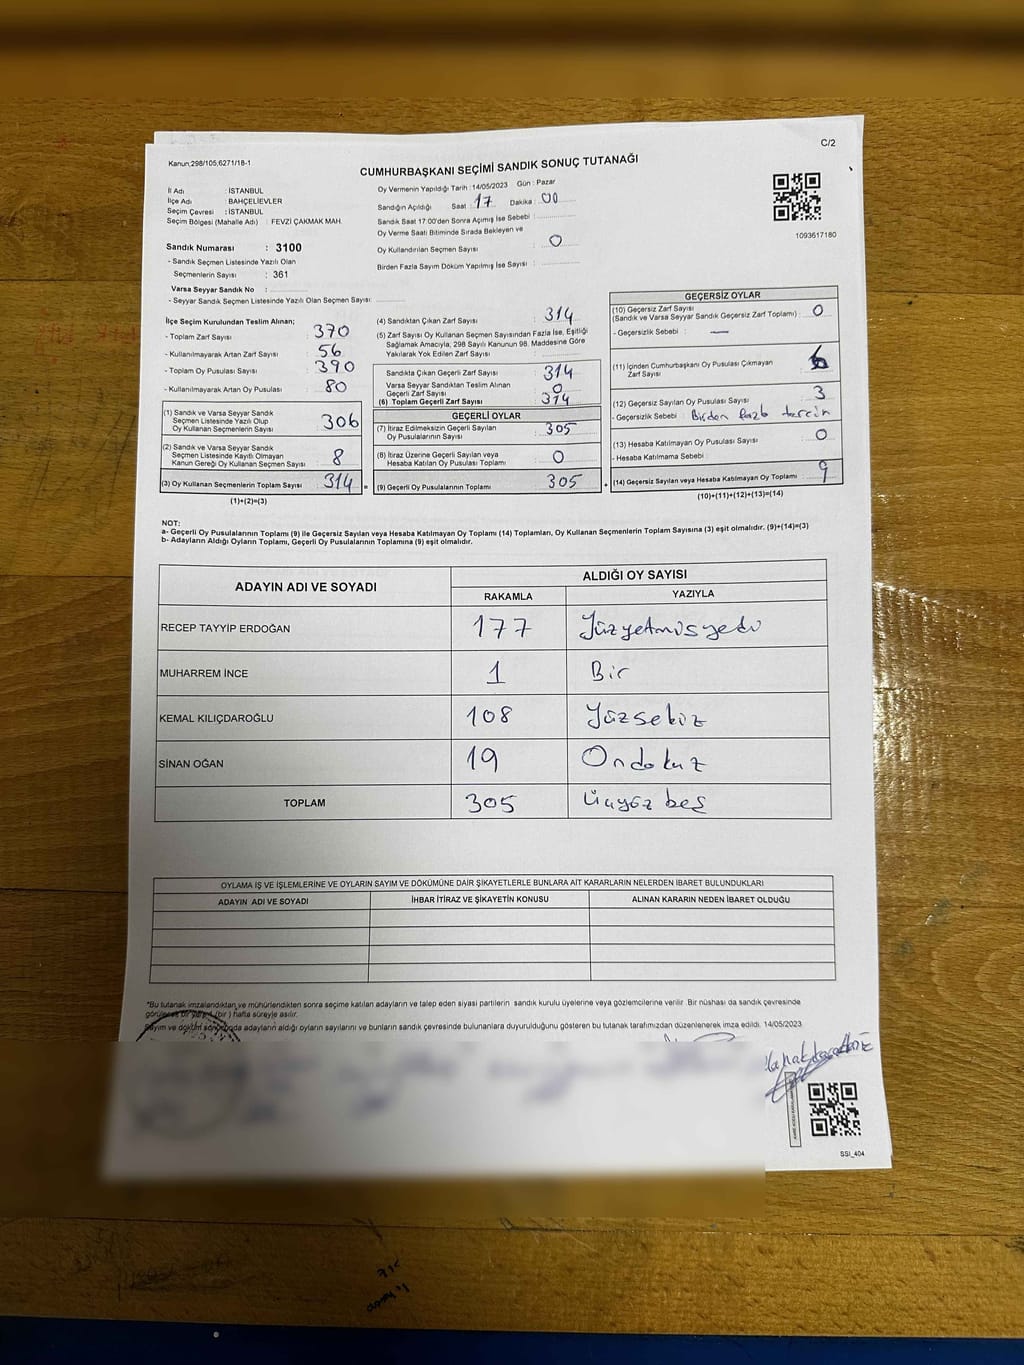 C/2
Kanun;298/105,6271/18-1
CUMHURBAŞKANI SEÇİMİ SANDIK SONUÇ TUTANAĞI
İl Adı : İSTANBUL
İlçe Adı : BAHÇELİEVLER
Seçim Çevresi : İSTANBUL
Seçim Bölgesi (Mahalle Adı) : FEVZİ ÇAKMAK MAH.
Sandık Numarası : 3100
- Sandık Seçmen Listesinde Yazılı Olan
Seçmenlerin Sayısı : 361
Varsa Seyyar Sandık No :
- Seyyar Sandık Seçmen Listesinde Yazılı Olan Seçmen Sayısı:
Oy Vermenin Yapıldığı Tarih : 14/05/2023 Gün : Pazar
Sandığın Açıldığı Saat 17 Dakika 00
Sandık Saat 17:00'den Sonra Açımış İse Sebebi :
Oy Verme Saati Bitiminde Sırada Bekleyen ve
Oy Kullandırılan Seçmen Sayısı : 0
Birden Fazla Sayım Döküm Yapılmış İse Sayısı :
1093617180
İlçe Seçim Kurulundan Teslim Alınan;
- Toplam Zarf Sayısı : 370
- Kullanılmayarak Artan Zarf Sayısı : 56
- Toplam Oy Pusulası Sayısı : 390
- Kullanılmayarak Artan Oy Pusulası : 80
(1) Sandık ve Varsa Seyyar Sandık
Seçmen Listesinde Yazılı Olup
Oy Kullanan Seçmenlerin Sayısı : 306
(2) Sandık ve Varsa Seyyar Sandık
Seçmen Listesinde Kayıtlı Olmayan
Kanun Gereği Oy Kullanan Seçmen Sayısı : 8
(3) Oy Kullanan Seçmenlerin Toplam Sayısı : 314
(1)+(2)=(3)
(4) Sandıktan Çıkan Zarf Sayısı : 314
(5) Zarf Sayısı Oy Kullanan Seçmen Sayısından Fazla İse, Eşitliği
Sağlamak Amacıyla, 298 Sayılı Kanunun 98. Maddesine Göre
Yakılarak Yok Edilen Zarf Sayısı :
Sandıkta Çıkan Geçerli Zarf Sayısı : 314
Varsa Seyyar Sandıktan Teslim Alınan
Geçerli Zarf Sayısı : 0
(6) Toplam Geçerli Zarf Sayısı : 314
GEÇERLİ OYLAR
(7) İtiraz Edilmeksizin Geçerli Sayılan
Oy Pusulalarının Sayısı : 305
(8) İtiraz Üzerine Geçerli Sayılan veya
Hesaba Katılan Oy Pusulası Toplamı : 0
(9) Geçerli Oy Pusulalarının Toplamı : 305
GEÇERSİZ OYLAR
(10) Geçersiz Zarf Sayısı
(Sandık ve Varsa Seyyar Sandık Geçersiz Zarf Toplamı) : 0
- Geçersizlik Sebebi : —
(11) İçinden Cumhurbaşkanı Oy Pusulası Çıkmayan
Zarf Sayısı : 6
(12) Geçersiz Sayılan Oy Pusulası Sayısı : 3
- Geçersizlik Sebebi : Birden fazla tercih
(13) Hesaba Katılmayan Oy Pusulası Sayısı : 0
- Hesaba Katılmama Sebebi :
(14) Geçersiz Sayılan veya Hesaba Katılmayan Oy Toplamı : 9
(10)+(11)+(12)+(13)=(14)
NOT:
a- Geçerli Oy Pusulalarının Toplamı (9) ile Geçersiz Sayılan veya Hesaba Katılmayan Oy Toplamı (14) Toplamları, Oy Kullanan Seçmenlerin Toplam Sayısına (3) eşit olmalıdır. (9)+(14)=(3)
b- Adayların Aldığı Oyların Toplamı, Geçerli Oy Pusulalarının Toplamına (9) eşit olmalıdır.
ADAYIN ADI VE SOYADI ALDIĞI OY SAYISI
RAKAMLA YAZIYLA
RECEP TAYYİP ERDOĞAN 177 Yüzyetmişyedi
MUHARREM İNCE 1 Bir
KEMAL KILIÇDAROĞLU 108 Yüzsekiz
SİNAN OĞAN 19 Ondokuz
TOPLAM 305 Üçyüz beş
OYLAMA İŞ VE İŞLEMLERİNE VE OYLARIN SAYIM VE DÖKÜMÜNE DAİR ŞİKAYETLERLE BUNLARA AİT KARARLARIN NELERDEN İBARET BULUNDUKLARI
ADAYIN ADI VE SOYADI İHBAR İTİRAZ VE ŞİKAYETİN KONUSU ALINAN KARARIN NEDEN İBARET OLDUĞU
*Bu tutanak imzalandıktan ve mühürlendikten sonra seçime katılan adayların ve talep eden siyasi partilerin sandık kurulu üyelerine veya gözlemcilerine verilir. Bir nüshası da sandık çevresinde
görülecek bir yere 1 (bir) hafta süreyle asılır.
Sayım ve döküm sonucunda adayların aldığı oyların sayılarını ve bunların sandık çevresinde bulunanlara duyurulduğunu gösteren bu tutanak tarafımızdan düzenlenerek imza edildi. 14/05/2023
SSI_404